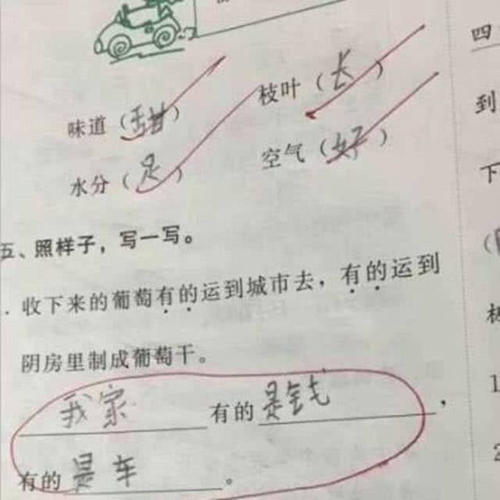 味道（甜） 枝叶（长）
水分（足） 空气（好）
五、照样子，写一写。
. 收下来的葡萄有的运到城市去，有的运到
阴房里制成葡萄干。
我家有的是钱，
有的是车。
四
到
下
1
2